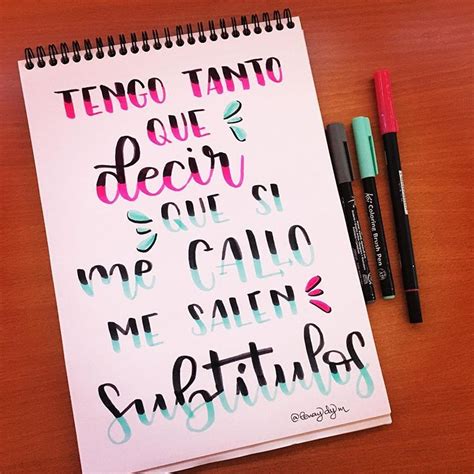 TENGO TANTO
QUE
decir
QUE SI
me CALLO
ME SALEN
subtitulos
Coloring Brush Pen